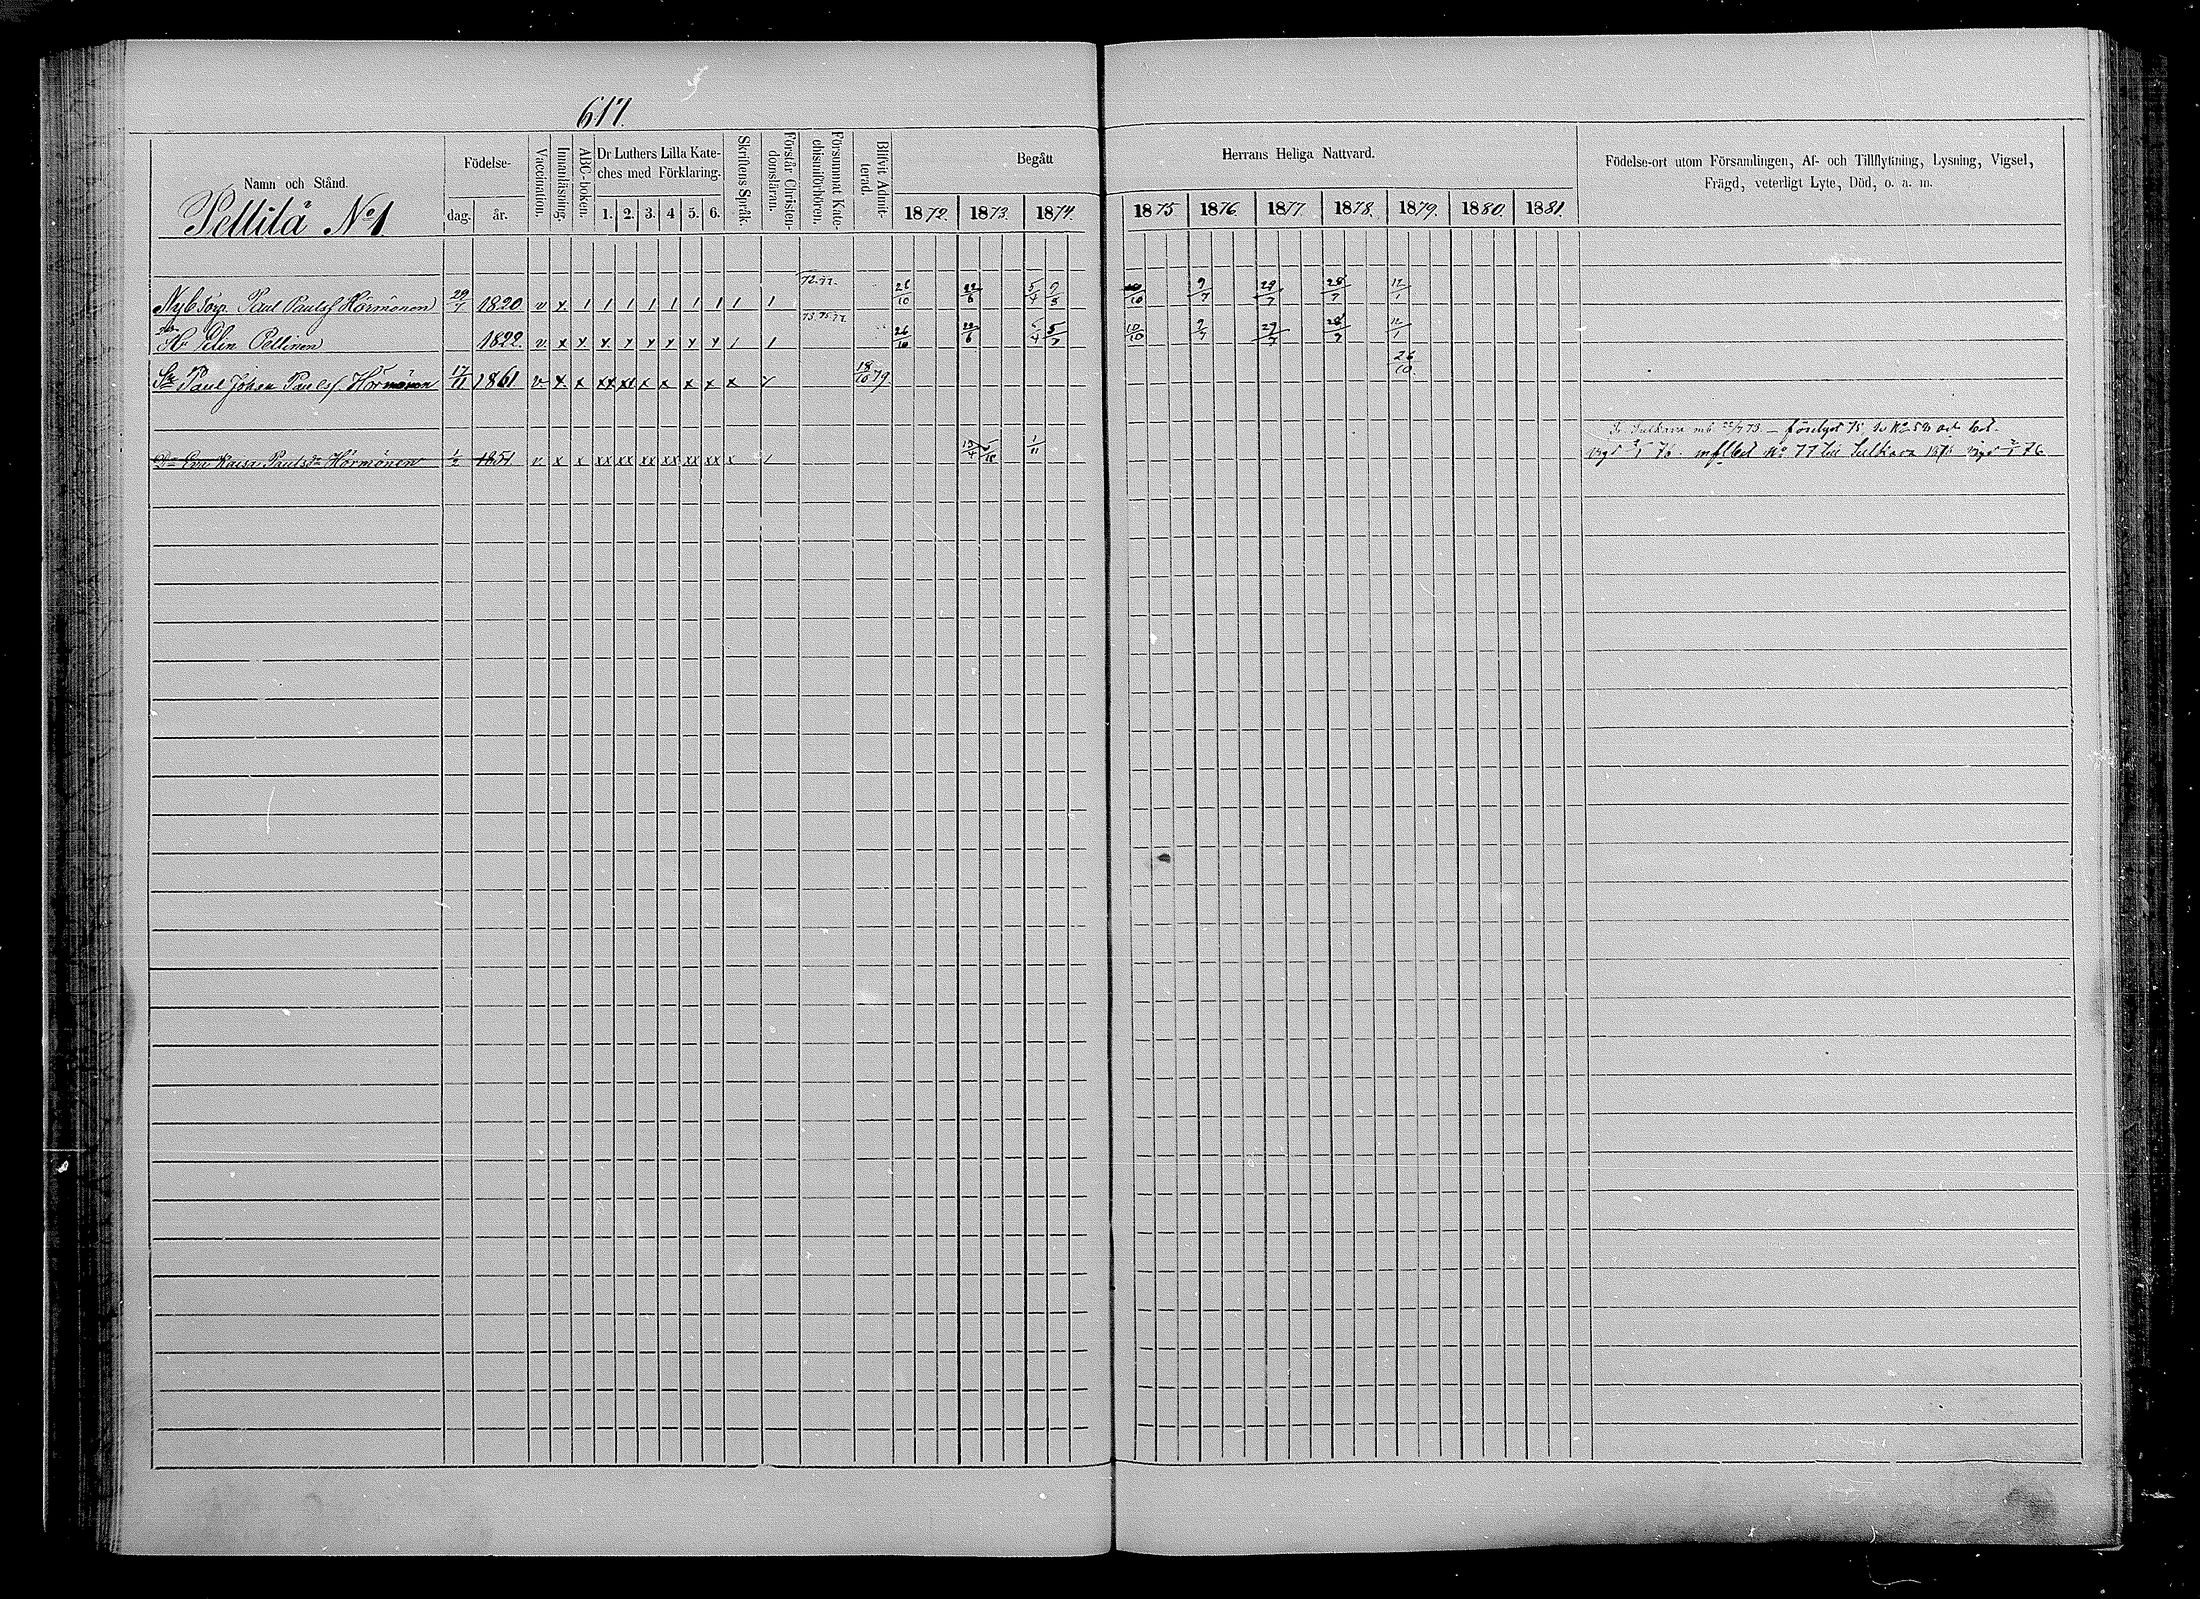 617.
Namn och Stånd.
Födelse-
dag. år.
Vaccination.
Innanläsning.
ABC-boken.
Dr Luthers Lilla Kate-
ches med Förklaring.
1. 2. 3. 4 5. 6.
Skriftens Språk.
Förstår Christen-
domsläran.
Försummat Kate-
chismiförhören.
Blifvit Admit-
terad.
Begått
1872. 1873. 1874.
Herrans Heliga Nattvard.
1875 1876. 1877. 1878. 1879. 1880. 1881.
Födelse-ort utom Församlingen, Af- och Tillflyttning, Lysning, Vigsel,
Frägd, veterligt Lyte, Död, o. a. m.
Pellilä No 1
72. 77.
Paul Paulsf Hörmönen 29/7 1820 v x 1 1 1 1 1 1 1 1 1 26/10 22/6 5/4 9/8 10/10 9/7 29/7 28/7 12/1
73. 75. 77.
Elin Pellinen 1822. v x x x x x x x x 1 1 26/10 22/6 5/4 5/7 10/10 9/7 29/7 28/7 12/1
Paul Johan Paulsf. Hörmönen 17/11 1861 v x x xx xx x x x x x x 18/10 79 26/10
Sulkava 73. 75
Dr Eva Kaisa Paulsdr Hörmönen 1/2 1851 v. x x xx xx xx xx xx xx x 1 1/11 76. No 77 Sulkava 76